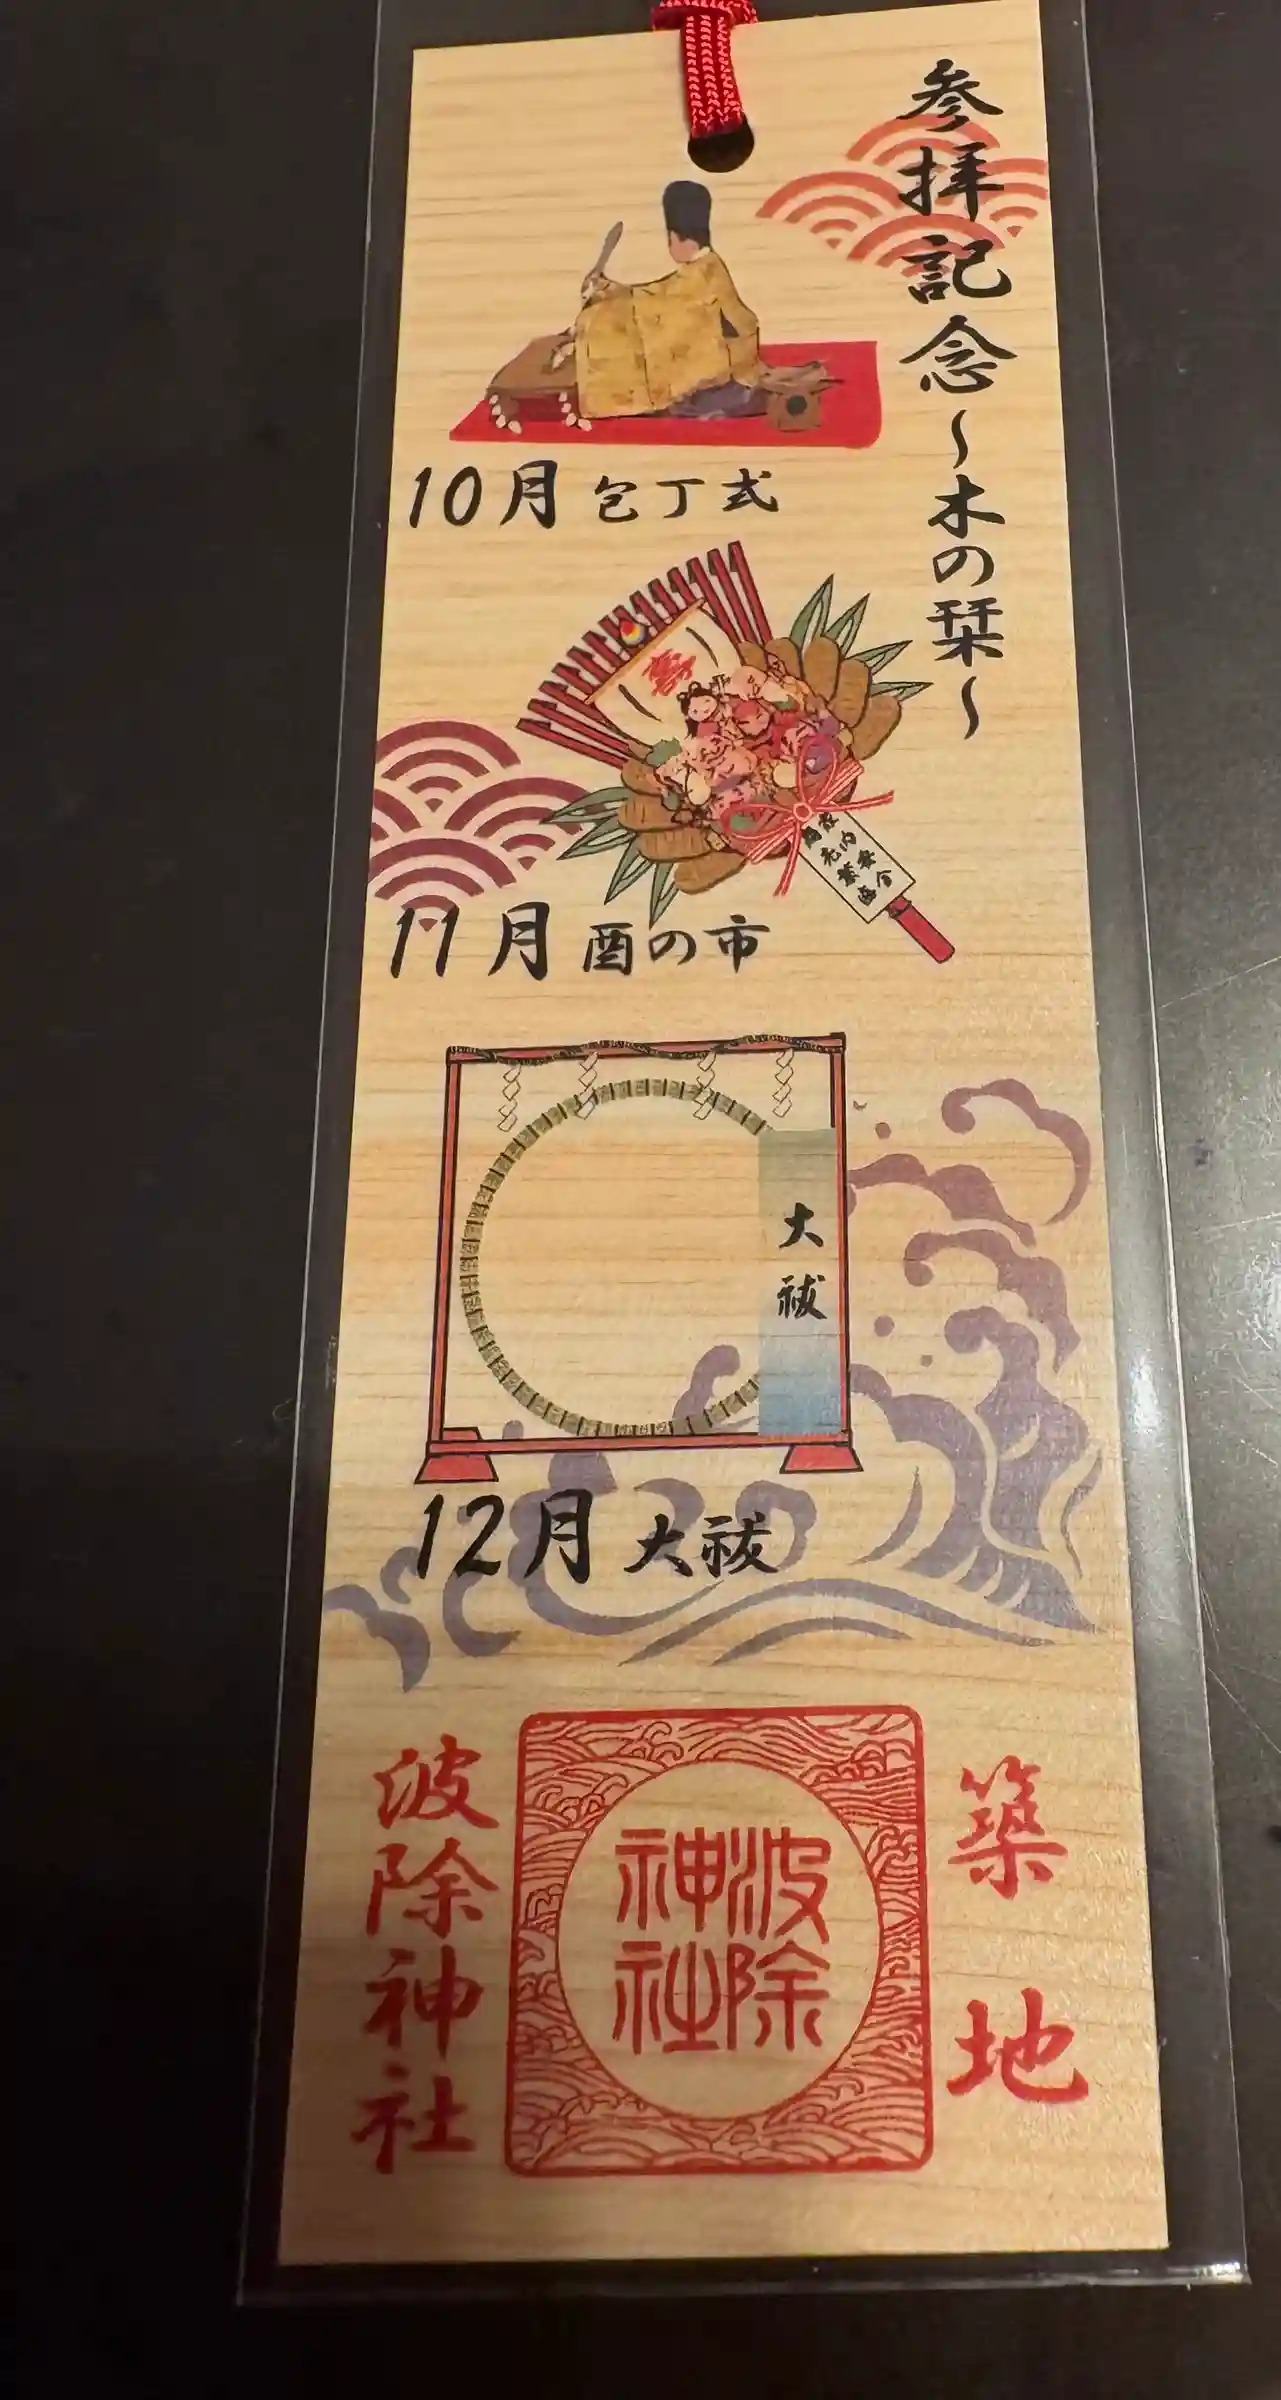 参拝記念〜木の栞〜
10月 包丁式
寿
家内安全
商売繁盛
11月 酉の市
大祓
12月 大祓
築地
波除神社
波除神社